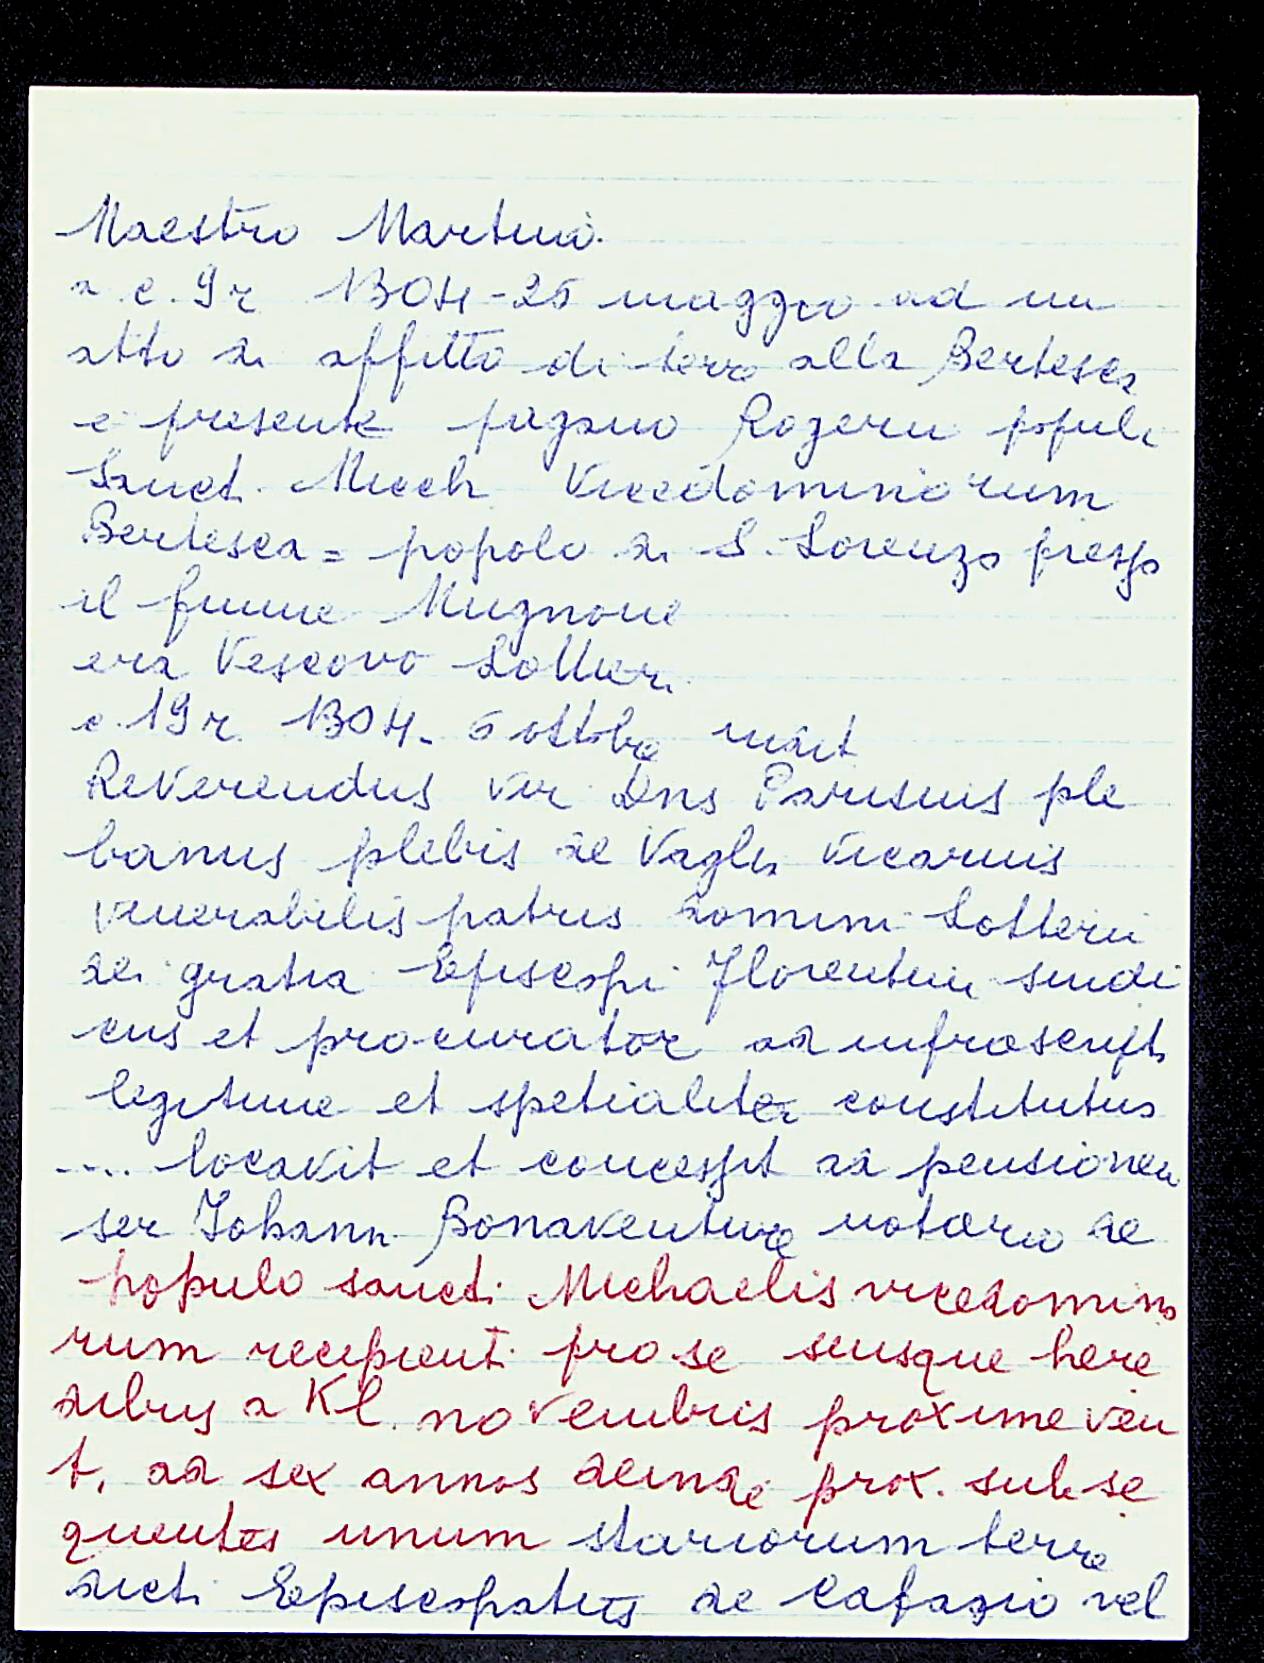 Maestro Martino.
a c. 9r 1304-25 maggio ad un
atto di affitto di terre alla Bertesca
e presente pagano Rogerii populi
Sanct. Mich Vicedominorum
Bertesca = popolo di S. Lorenzo presso
il fiume Mugnone
era Vescovo Lottieri
c. 19r. 1304. 6 ottobre
Reverendus vir Dns Parisius ple
banus plebis de Vaglia vicarius
venerabilis patris domini Lotterii
dei gratia Episcopi Florentini sindi
cus et procurator ad infrascript
legitime et spetialiter constitutus
.... locavit et concessit ad pensionem
ser Johann Bonaventure notario de
populo sancti Michaelis vicedomino
rum recipienti pro se suisque here
dibus a Kl. novembris proxime ven
t. ad sex annos deinde prox. subse
quentes unum stariorum terre
dicti Episcopatus de Cafagio vel